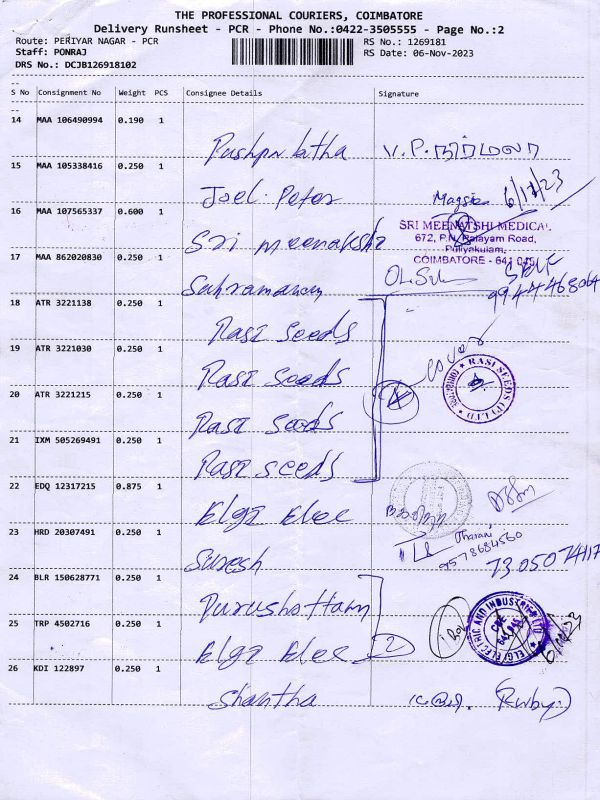 THE PROFESSIONAL COURIERS, COIMBATORE
Delivery Runsheet - PCR - Phone No.:0422-3505555 - Page No.:2
Route: PERIYAR NAGAR - PCR
RS No.: 1269181
Staff: PONRAJ
RS Date: 06-Nov-2023
DRS No.: DCJB126918102
S No Consignment No Weight PCS Consignee Details Signature
14 MAA 106490994 0.190 1
Pushpa latha V.P.நிர்மலா
15 MAA 105338416 0.250 1
Joel Peter 6/11/23
16 MAA 107565337 0.600 1
Sri meenakshi
SRI MEENATSHI MEDICAL
672, P.N. Palayam Road,
COIMBATORE - 641 045
17 MAA 862020830 0.250 1
Subramanian
18 ATR 3221138 0.250 1
Rasi seeds
19 ATR 3221030 0.250 1
Rasi seeds
RASI SEEDS (P) LTD
20 ATR 3221215 0.250 1
Rasi seeds
4
21 IXM 505269491 0.250 1
Rasi seeds
22 EDQ 12317215 0.875 1
Elgi Elec
23 HRD 20307491 0.250 1
Suresh
Tharani
9578684560
24 BLR 150628771 0.250 1
Purushottam
25 TRP 4502716 0.250 1
Elgi Elec 2
ELGI ELECTRIC AND INDUSTRIES LTD
CBE
26 KDI 122897 0.250 1
Shantha (Ruby)